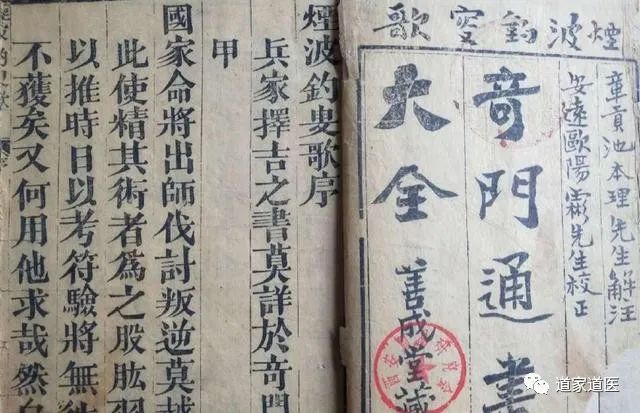 煙波釣叟歌
章貢池本理先生解注
安遠歐陽霖先生校正
奇門通書
大全
善成堂藏
煙波釣叟歌序
兵家擇吉之書莫詳於奇門
甲
國家命將出師伐討叛逆莫越
此使精其術者為之股肱羽
以推時日以考符驗將無
不獲矣又何用他求哉然
道家道医